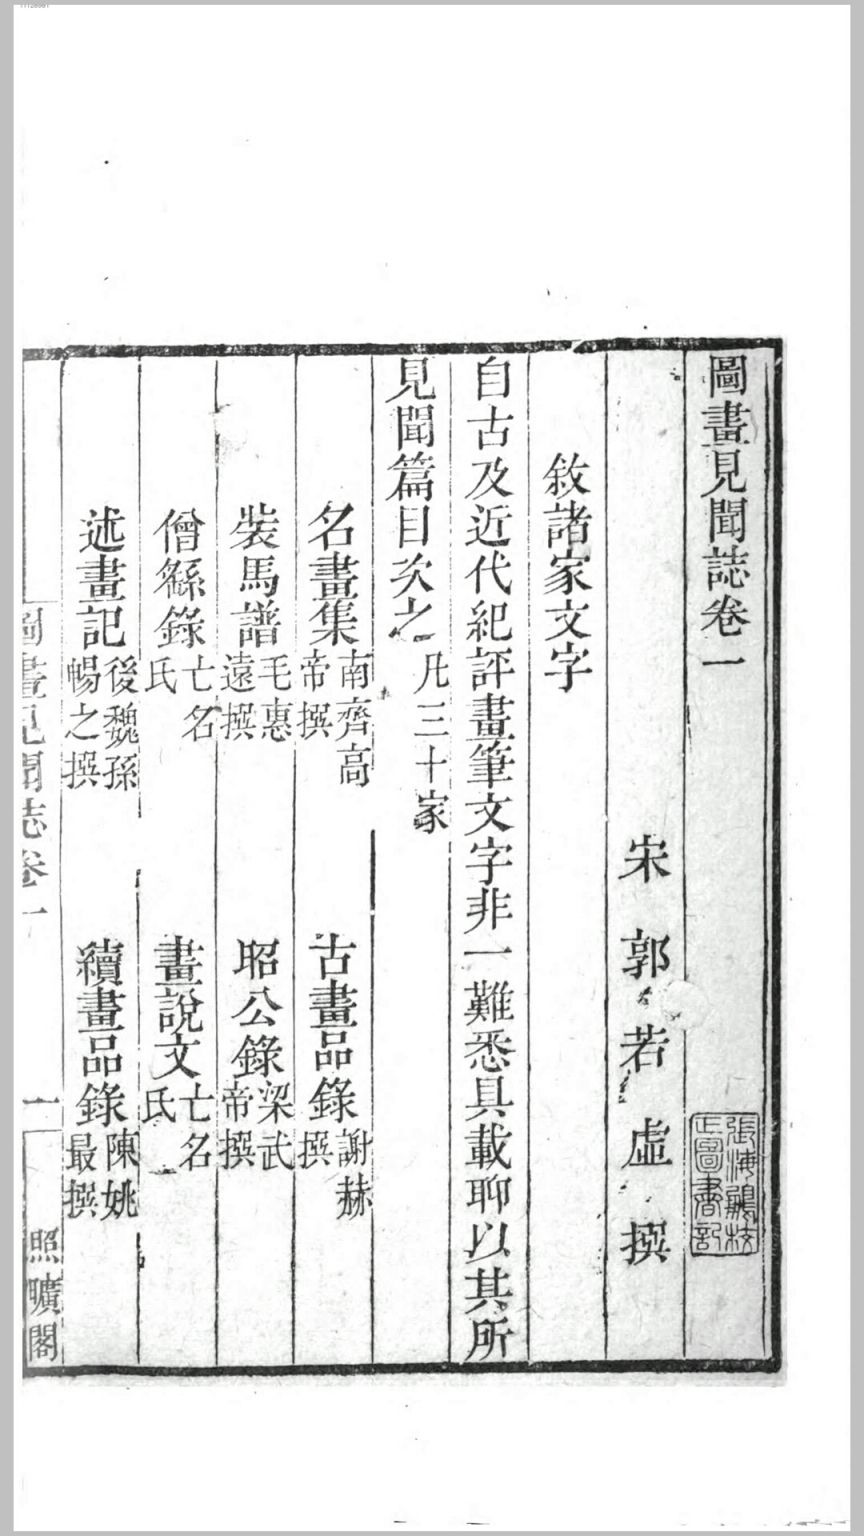 圖畫見聞誌卷一
宋郭若虛撰
敘諸家文字
自古及近代紀評畫筆文字非一難悉具載聊以其所
見聞篇目次之凡三十家
名畫集南齊高帝撰 古畫品錄謝赫撰
裝馬譜毛惠遠撰 昭公錄梁武帝撰
僧繇錄亡名氏 畫說文亡名氏
述畫記後魏孫暢之撰 續畫品錄陳姚最撰
圖畫見聞誌卷一 一 照曠閣
張海鵬校
正圖書記